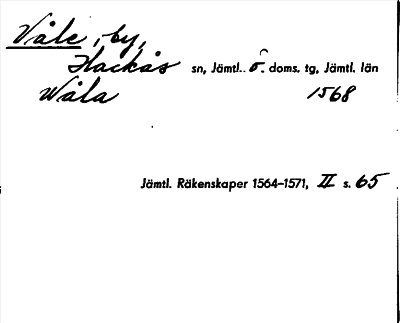 Våle, by,
Hackås sn, Jämtl. ö. doms. tg, Jämtl. län
Wåla 1568
Jämtl. Räkenskaper 1564-1571, II s. 65